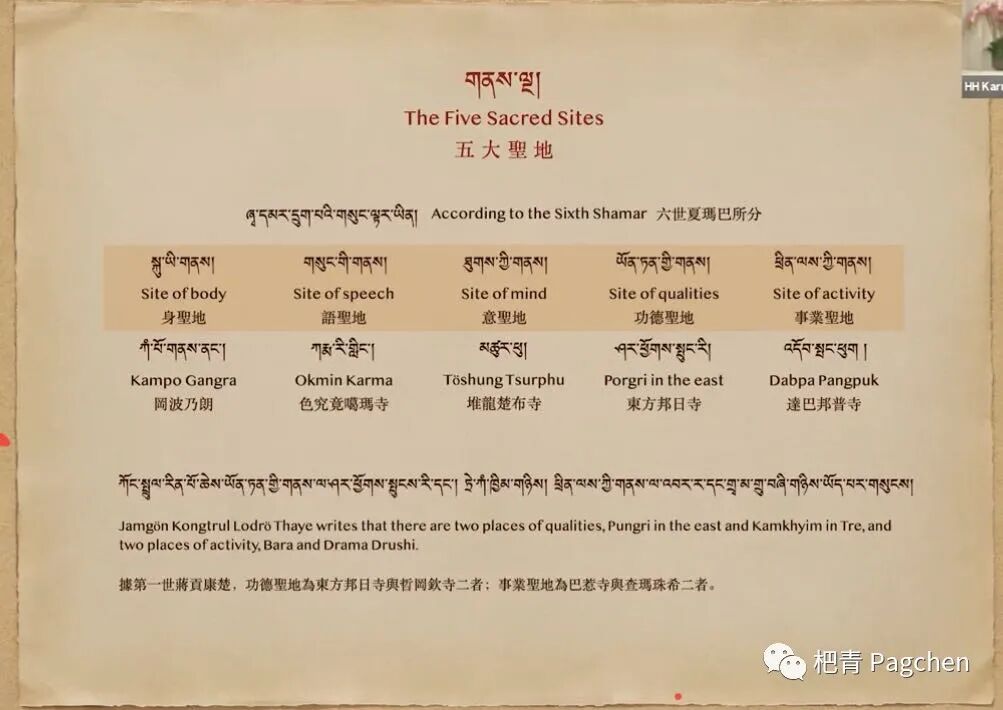 གནས་ལྔ།
The Five Sacred Sites
五大聖地
HH Kar
ཞྭ་དམར་དྲུག་པའི་གསུང་ལྟར་ཡིན། According to the Sixth Shamar 六世夏瑪巴所分
སྐུ་ཡི་གནས། གསུང་གི་གནས། ཐུགས་ཀྱི་གནས། ཡོན་ཏན་གྱི་གནས། ཕྲིན་ལས་ཀྱི་གནས།
Site of body Site of speech Site of mind Site of qualities Site of activity
身聖地 語聖地 意聖地 功德聖地 事業聖地
ཀཾ་པོ་གནས་ནང་། ཀརྨ་རི་གླིང་། མཚུར་ཕུ། ཤར་ཕྱོགས་སྤུང་རི། འདོབ་སྤང་ཕུག །
Kampo Gangra Okmin Karma Töshung Tsurphu Porgri in the east Dabpa Pangpuk
岡波乃朗 色究竟噶瑪寺 堆龍楚布寺 東方邦日寺 達巴邦普寺
ཀོང་སྤྲུལ་རིན་པོ་ཆེས་ཡོན་ཏན་གྱི་གནས་ལ་ཤར་ཕྱོགས་སྤུངས་རི་དང་། ཏྲེ་ཀཾ་ཁྱིམ་གཉིས། ཕྲིན་ལས་ཀྱི་གནས་ལ་འབར་ར་དང་གྲྭ་མ་གྲུ་བཞི་གཉིས་ཡོད་པར་གསུངས།
Jamgön Kongtrul Lodrö Thaye writes that there are two places of qualities, Pungri in the east and Kamkhyim in Tre, and
two places of activity, Bara and Drama Drushi.
據第一世蔣貢康楚，功德聖地為東方邦日寺與哲岡欽寺二者；事業聖地為巴惹寺與查瑪珠希二者。
杷青 Pagchen